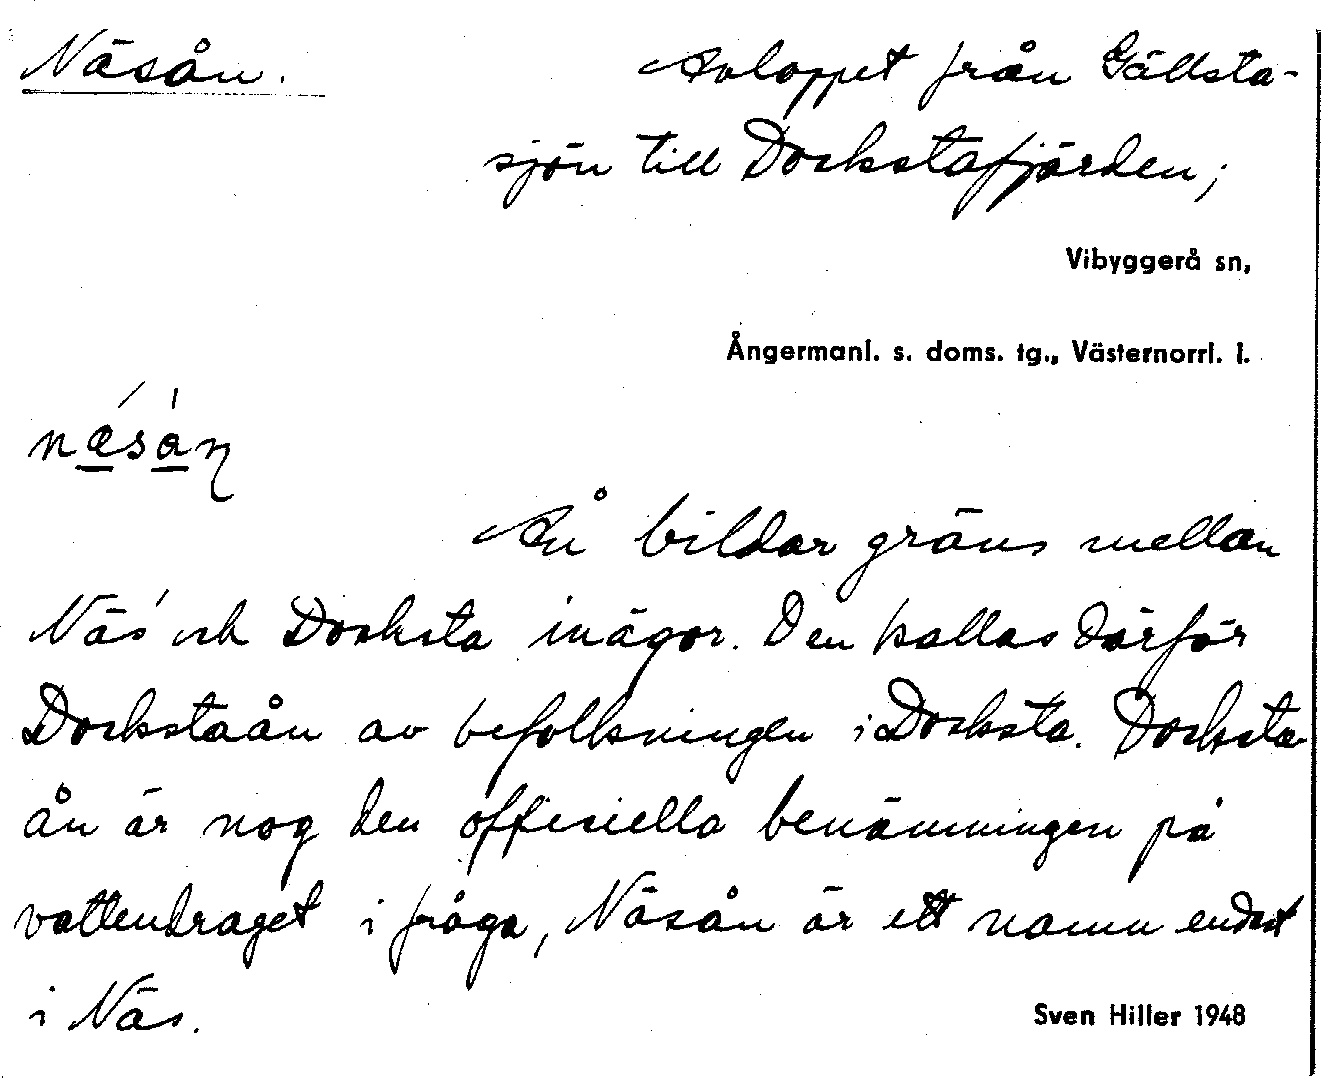 Näsån. Avloppet från Gällsta-
sjön till Dockstafjärden;
Vibyggerå sn,
Ångermanl. s. doms. tg., Västernorrl. l.
Ån bildar gräns mellan
Näs' och Docksta inägor. Den kallas därför
Dockstaån av befolkningen i Docksta. Docksta-
ån är nog den officiella benämningen på
vattendraget i fråga, Näsån är ett namn endast
i Näs.
Sven Hiller 1948